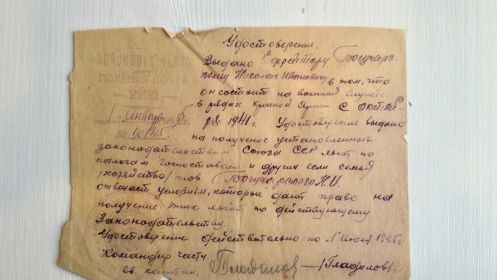 Удостоверение.
Выдано Ефрейтору
Николаю Ивановичу в том, что
он состоит на военной службе
в рядах Красной Армии с
1941г. Удостоверение выдано
на получение установленных
законодательством Союза ССР льгот по
налогам госпоставкам и других если семья
(хозяйство) тов. Н.И.
отвечает условиям, которые дают право на
получение этих льгот по действующему
Законодательству.
Удостоверение действительно по 1 июля 1945г.
Командир части
ПОЛЕВАЯ
Января
№